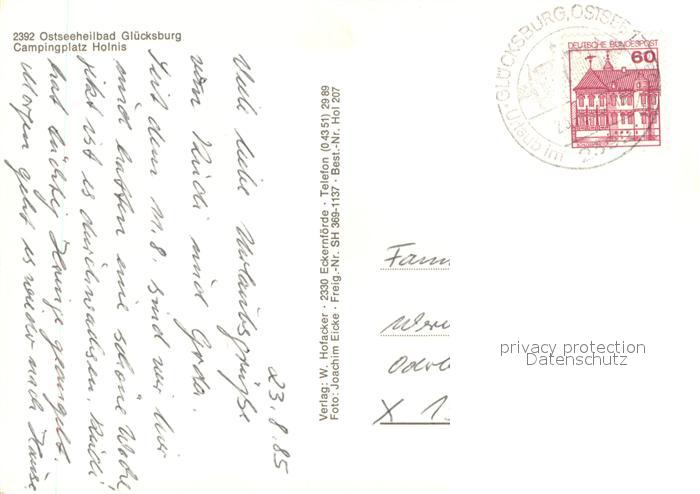 2392 Ostseeheilbad Glücksburg
Campingplatz Holnis
23.8.85
Viele liebe Urlaubsgrüße
von Rudi und Gerda.
Seit dem 11.8. sind wir hier
und hatten eine schöne Woche,
jetzt ist es durchwachsen. Rudi
hat tüchtig geangelt.
Morgen geht es wieder nach Hause.
Verlag: W. Hofacker · 2330 Eckernförde · Telefon (0 43 51) 29 89
Foto: Joachim Eicke · Freig.-Nr. SH 369-1137 · Best.-Nr. Hol 207
GLÜCKSBURG, OSTSEE
Urlaub im
DEUTSCHE BUNDESPOST
60
Fam
Wer
X 1
privacy protection
Datenschutz